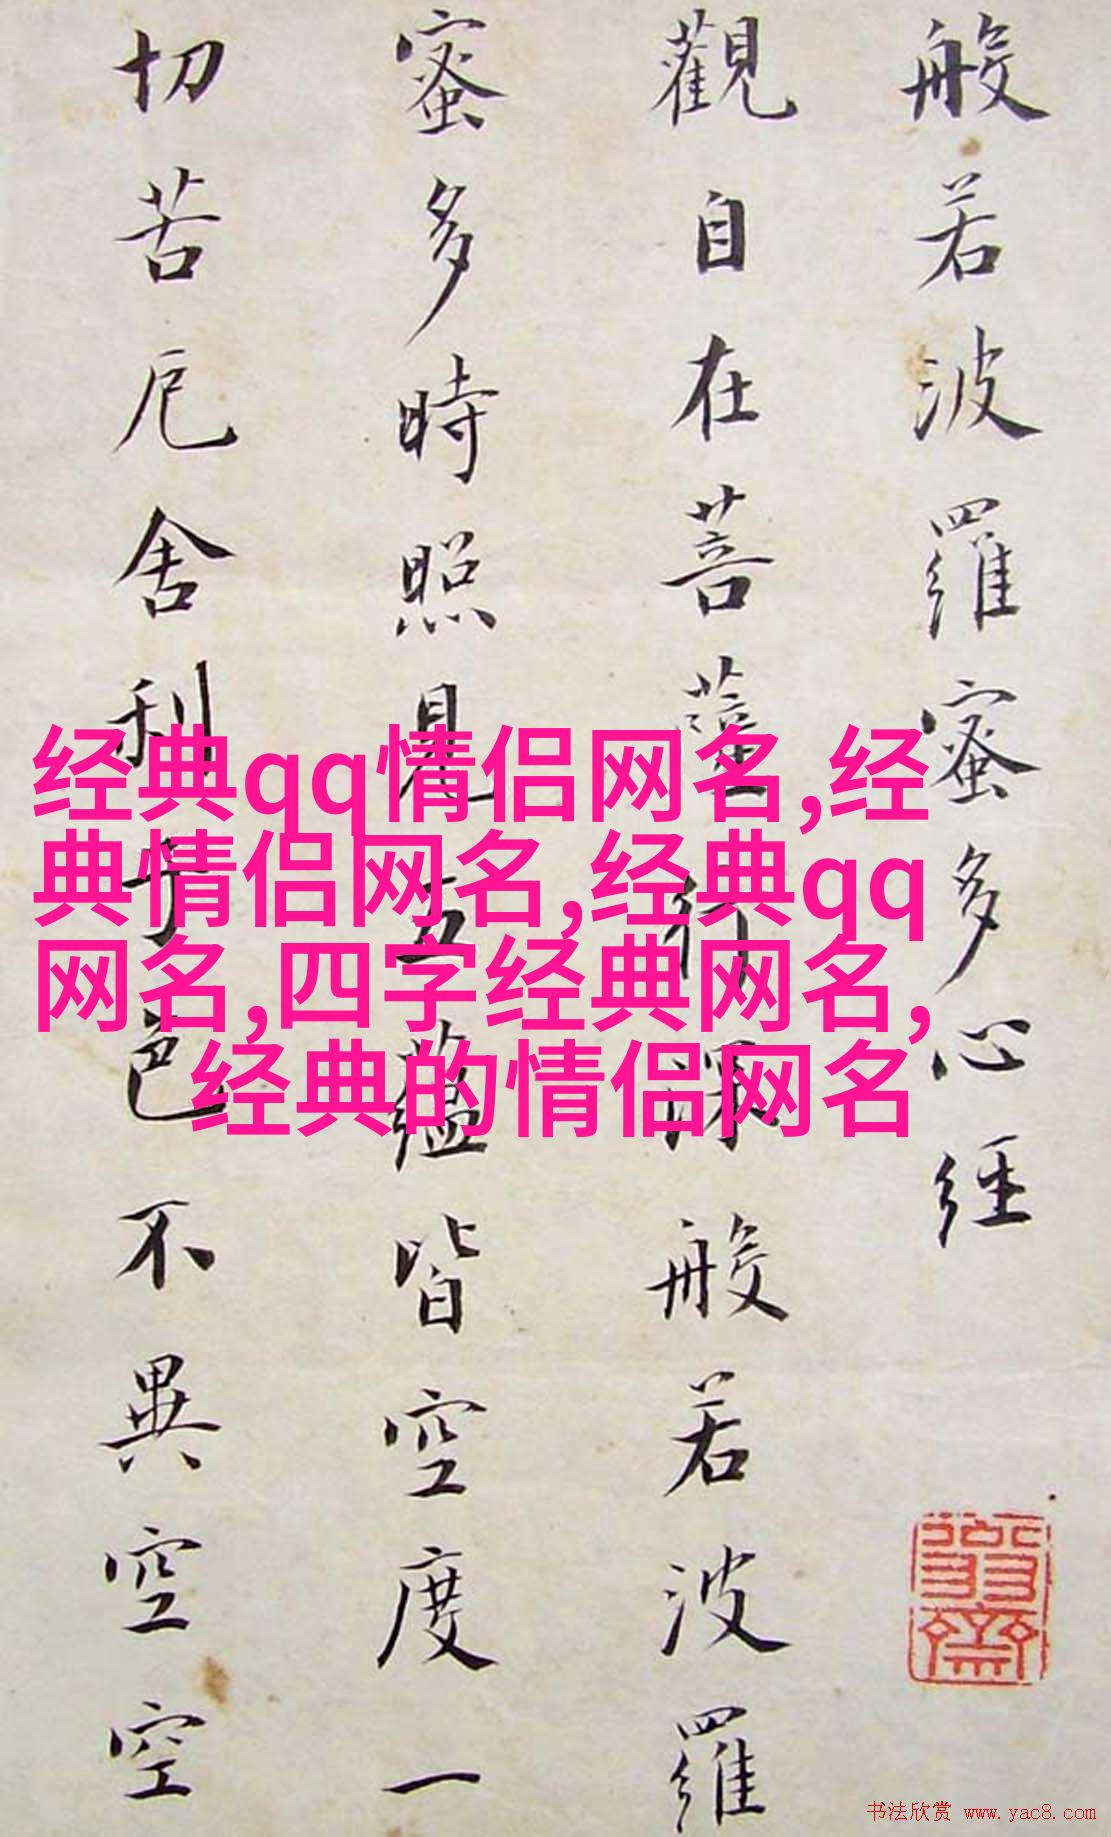 般若波羅蜜多心經
觀自在菩薩行深般若波羅
蜜多時照見五蘊皆空度一
切苦厄舍利子色不異空空
经典qq情侣网名,经
典情侣网名,经典qq
网名,四字经典网名,
经典的情侣网名
书法欣赏 www.yac8.com